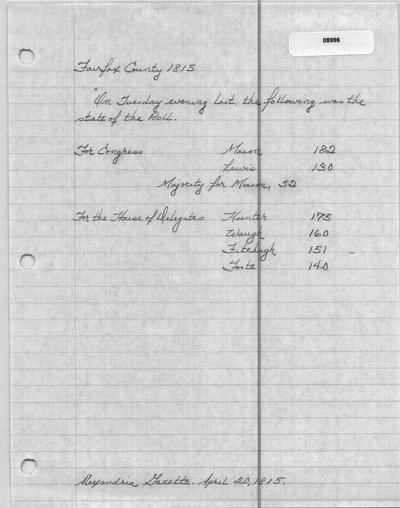 08996
Fairfax County 1815
"On Tuesday evening last, the following was the
state of the Poll.
For Congress Mason 182
Lewis 130
Majority for Mason, 52
For the House of Delegates Hunter 175
Waugh 160
Fitzhugh 151 "
Foote 140
Alexandria Gazette. April 20, 1815.